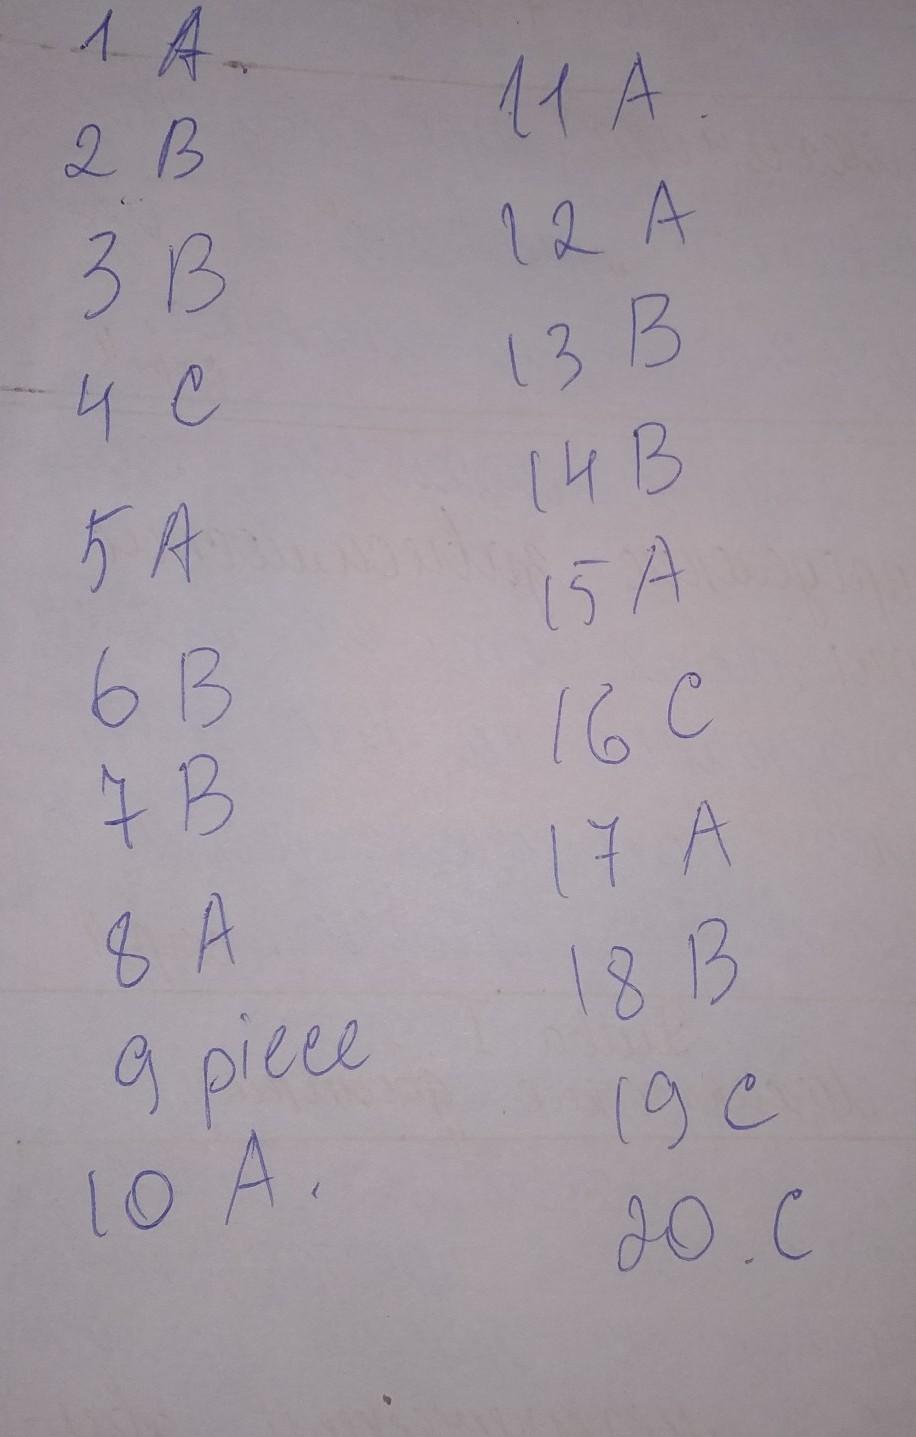 1 A.
2 B
3 B
4 C
5 A
6 B
7 B
8 A
9 piece
10 A.
11 A.
12 A
13 B
14 B
15 A
16 C
17 A
18 B
19 C
20. C